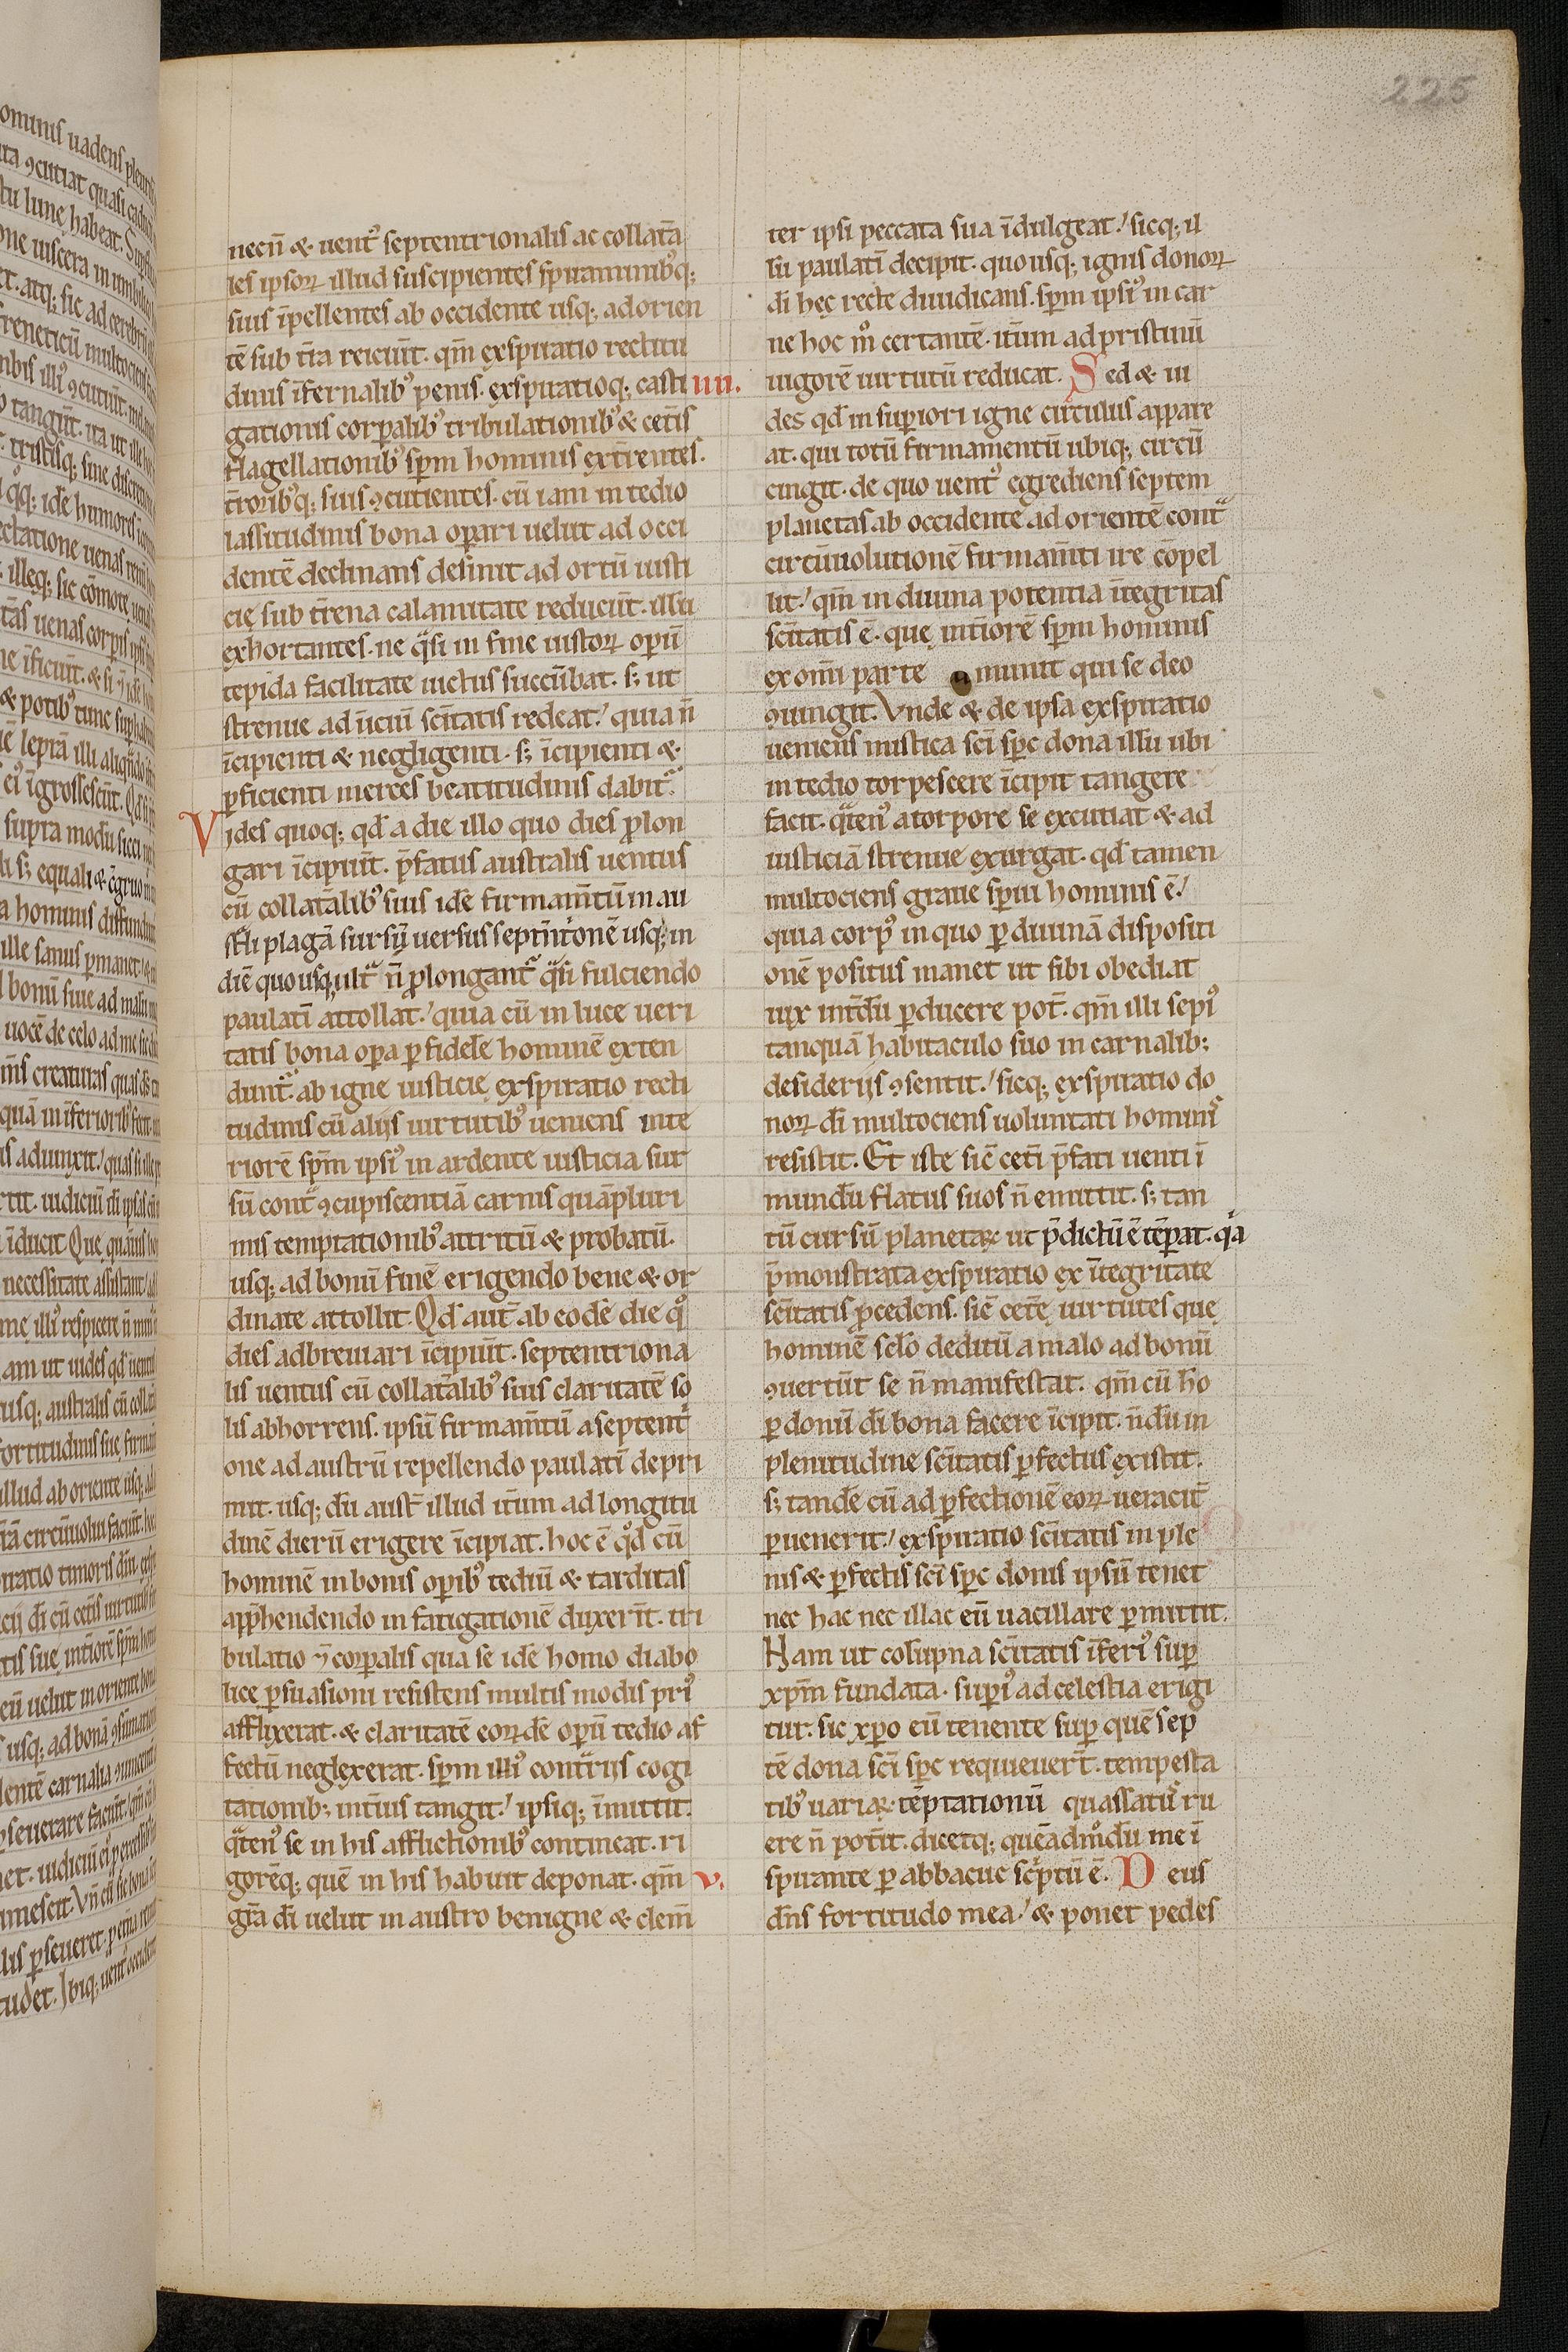 225
necn̄ & uentꝰ septentrionalis ac collata
les ipsoꝝ illud suscipientes spiraminibꝰq;
suis īpellentes ab occidente usq; ad orien
tē sub tr̄a reiciūt. qm̄ exspiratio rectitu
dinis īfernalibꝰ penis. exspiratioq; casti
gationis corꝑalibꝰ tribulationibꝰ & cet̄is
flagellationibꝰ spm̄ hominis ext̄rentes.
t̄roribꝰq; suis ꝯcutientes. cū iam in tedio
lassitudinis bona oꝑari uelut ad occi
dentē declinans desinit ad ortū iusti
cię sub t̄rena calamitate reducūt. illū
exhortantes. ne qͣsi in fine iustoꝝ opū
tepida facilitate uictus succūbat. s; ut
strenue ad īiciū sc̄itatis redeat. quia n̄
īcipienti & negligenti. s; īcipienti &
ꝓficienti merces beatitudinis dabitᷣ.
Vides quoq; qd̄ a die illo quo dies ꝓlon
gari īcipiūt. p̄fatus australis uentus
cū collatālibꝰ suis idē firmam̄tū in au
st̄li plagā sursū uersus septn̄t̄onē usq; in
diē quousq; ultᷣ n̄ ꝓlongantᷣ qͣsi fulciendo
paulatī attollat. quia cū in luce ueri
tatis bona oꝑa ꝑ fidelē hominē exten
duntᷣ. ab igne iusticię exspiratio recti
tudinis cū alijs uirtutibꝰ ueniens inte
riorē spm̄ ipsiꝰ in ardente iusticia sur
sū contͣ ꝯcupiscentiā carnis quāpluri
mis temptationibꝰ attritū & probatū.
usq; ad bonū finē erigendo bene & or
dinate attollit. Qd̄ aut̄ ab eodē die qͦ
dies adbreuiari īcipiūt. septentriona
lis uentus cū collatālibꝰ suis claritatē so
lis abhorrens. ipsū firmam̄tū a septentͥ
one ad austrū repellendo paulatī depri
mit. usq; dū aust̄ illud it̄um ad longitu
dinē dierū erigere īcipiat. hoc ē qͦd cū
hominē in bonis oꝑibꝰ tediū & tarditas
app̄hendendo in fatigationē duxerīt. tri
bulatio ⁊ corꝑalis qua se idē homo diabo
lice ꝑsuasioni resistens multis modis priꝰ
afflixerat. & claritatē eoꝝdē opū tedio af
fectū neglexerat. spm̄ illiꝰ contͣrijs cogi
tationib; int̄ius tangit. ipsiq; īmittit.
qͣtenꝰ se in his afflictionibꝰ contineat. ri
gorēq; quē in his habuit deponat. qm̄
gr̄a dī uelut in austro benigne & clem̄
iiii.
ter ipsi peccata sua īdulgeat. sicq; il
lū paulatī decipit. quousq; ignis donoꝝ
dī hęc recte diiudicans. spm̄ ipsiꝰ in car
ne hoc mͦ certantē. it̄um ad pristinū
uigorē uirtutū reducat. Sed & ui
des qd̄ in suꝑiori igne circulus appare
at. qui totū firmamentū ubiq; circū
cingit. de quo uentꝰ egrediens septem
planetas ab occidente ad orientē contͣ
circūuolutionē firmam̄ti ire cōpel
lit. qm̄ in diuina potentia īntegritas
sc̄itatis ē. que int̄iorē spm̄ hominis
ex om̄i parte munit qui se deo
ꝯiungit. Vnde & de ipsa exspiratio
ueniens mistica sc̄i sp̄c dona illū ubi
in tedio torpescere īcipit tangere
facit. qͣtenꝰ a torpore se excutiat & ad
iusticiā strenue exurgat. qd̄ tamen
multociens graue spiu hominis ē.
quia corpꝰ in quo ꝑ diuinā dispositi
onē positus manet ut sibi obediat
uix int̄dū ꝑducere pot̄. qm̄ illi sepiꝰ
tanquā habitaculo suo in carnalib;
desiderijs ꝯsentit. sicq; exspiratio do
noꝝ dī multociens uoluntati hominis
resistit. Et iste sic̄ cet̄i p̄fati uenti ī
mundū flatus suos n̄ emittit. s; tan
tū cursū planetaꝝ ut p̄dictū ē tēꝑat. qͥa
p̄monstrata exspiratio ex īntegritate
sc̄itatis ꝓcedens. sic̄ cet̄ę uirtutes que
hominē sc̄lo deditū a malo ad bonū
ꝯuertūt se n̄ manifestat. qm̄ cū hō
ꝑ donū dī bona facere īcipit. n̄dū in
plenitudine sc̄itatis ꝑfectus existit.
s; tandē cū ad ꝑfectionē eoꝝ ueracit̄
ꝑuenerit. exspiratio sc̄itatis in ple
nis & ꝑfectis sc̄i sp̄c donis ipsū tenet
nec hac nec illac eū uacillare ꝑmittit.
Nam ut colūpna sc̄itatis īferiꝰ suꝑ
xp̄m fundata. suꝑiꝰ ad celestia erigi
tur. sic xp̄o eū tenente suꝑ quē sep
tē dona sc̄i sp̄c requieuer̄t. tempesta
tibꝰ uariaꝝ tēptationū quassatꝰ ru
ere n̄ potīt. dicetq; quēadmͦdū me ī
spirante ꝑ abbacuc scͥptū ē. Deus
v.
dn̄s fortitudo mea. & ponet pedes